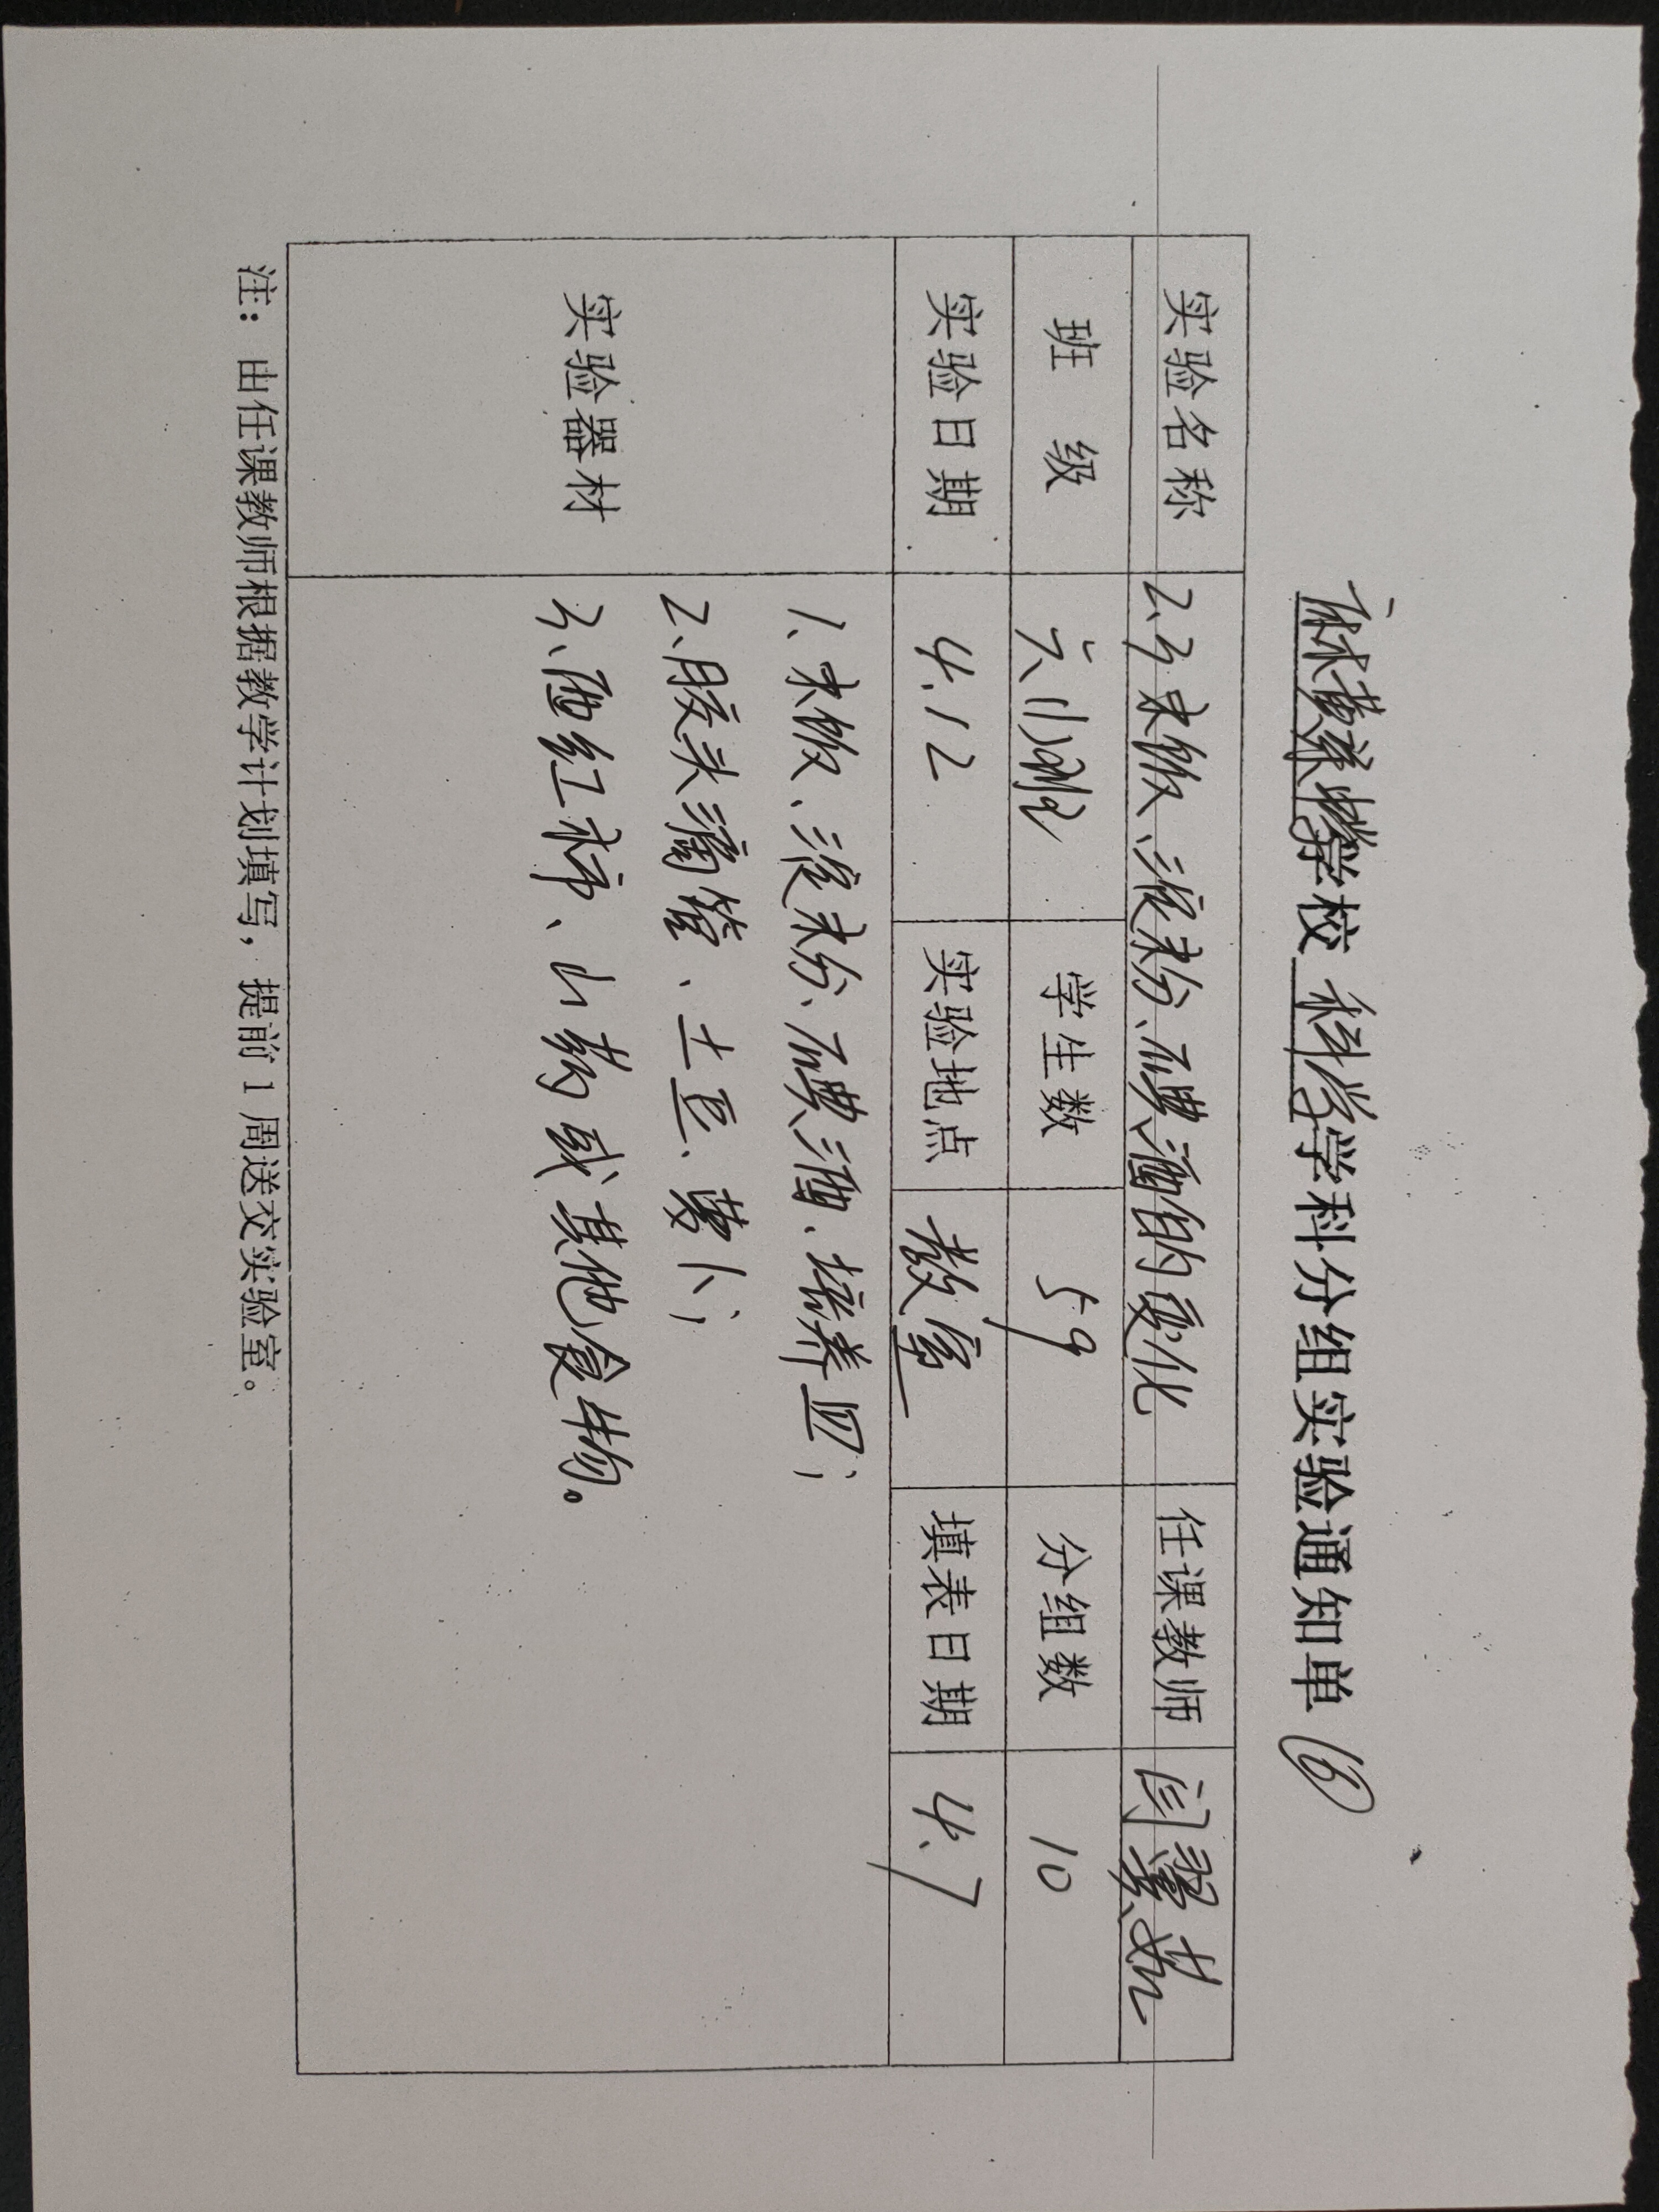 麻黄梁学校 科学学科分组实验通知单 ⑯
实验名称 2.3 米饭、淀粉、碘酒的变化 任课教师 闫翠茹
班 级 六(1)班 学生数 59 分组数 10
实验日期 4.12 实验地点 教室 填表日期 4.7
实验器材
1、米饭、淀粉、碘酒、培养皿;
2、胶头滴管、土豆、萝卜;
3、西红柿、山药或其他食物。
注：由任课教师根据教学计划填写，提前1周送交实验室。